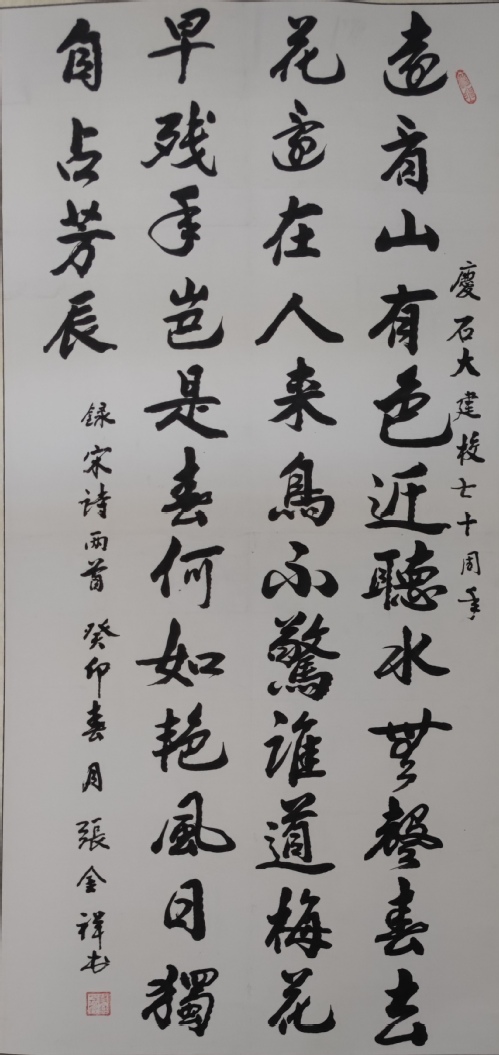 慶石大建校七十周年
遠看山有色近聽水無聲春去
花還在人来鳥不驚誰道梅花
早残年豈是春何如艳風日獨
自占芳辰
録宋詩两首 癸卯春月 張金祥书